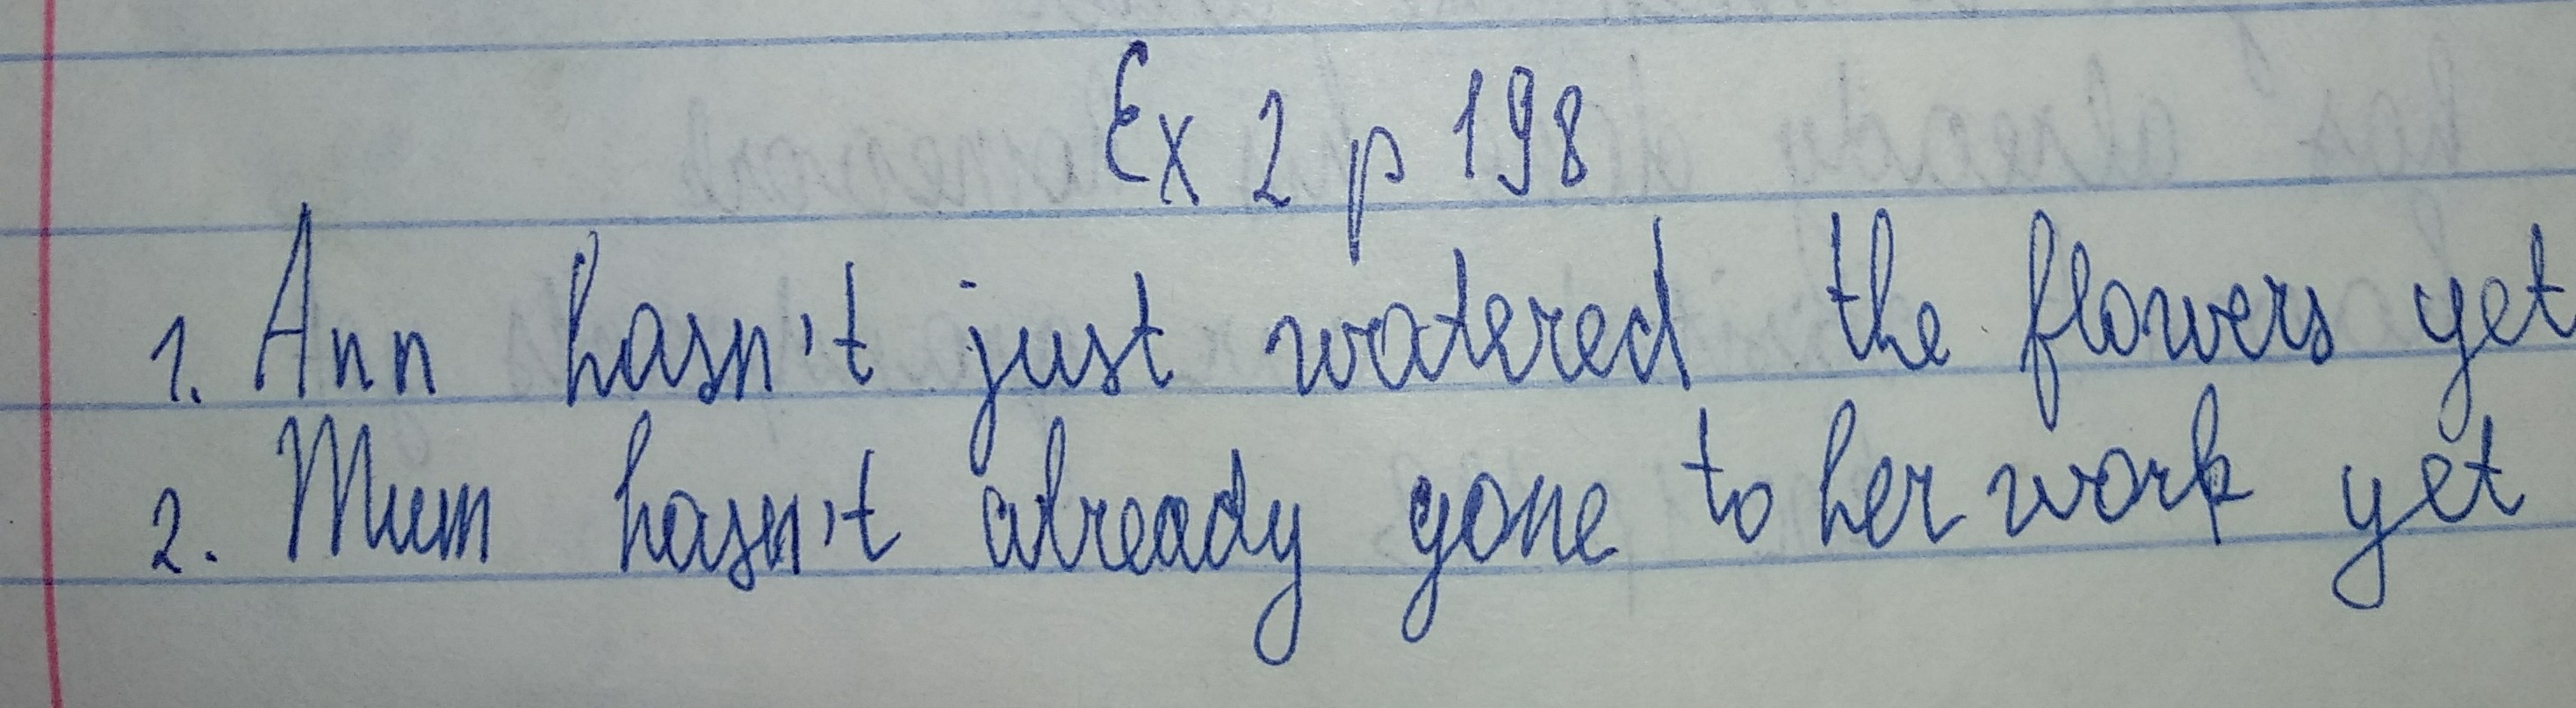 Ex 2 p 198
1. Ann hasn't just watered the flowers yet
2. Mum hasn't already gone to her work yet